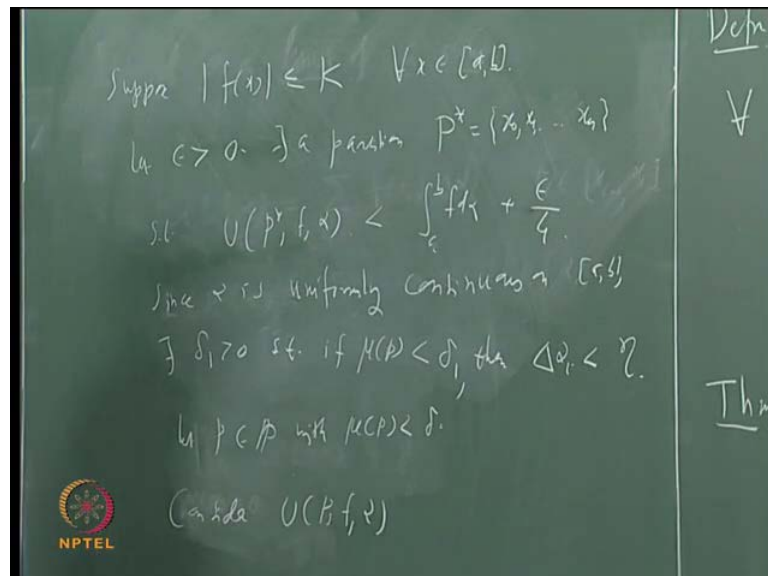 Suppose |f(x)| ≤ K ∀ x ∈ [a,b].
Let ε > 0. ∃ a partition P* = {x₀, x₁, ... xₙ}
s.t. U(P*, f, α) < ∫ₐᵇ f dα + ε/4.
Since α is uniformly continuous on [a,b],
∃ δ₁ > 0 s.t. if μ(P) < δ₁, then Δαᵢ < η.
Let P ∈ 𝒫 with μ(P) < δ.
Consider U(P, f, α)
Defn
∀
Thm
NPTEL